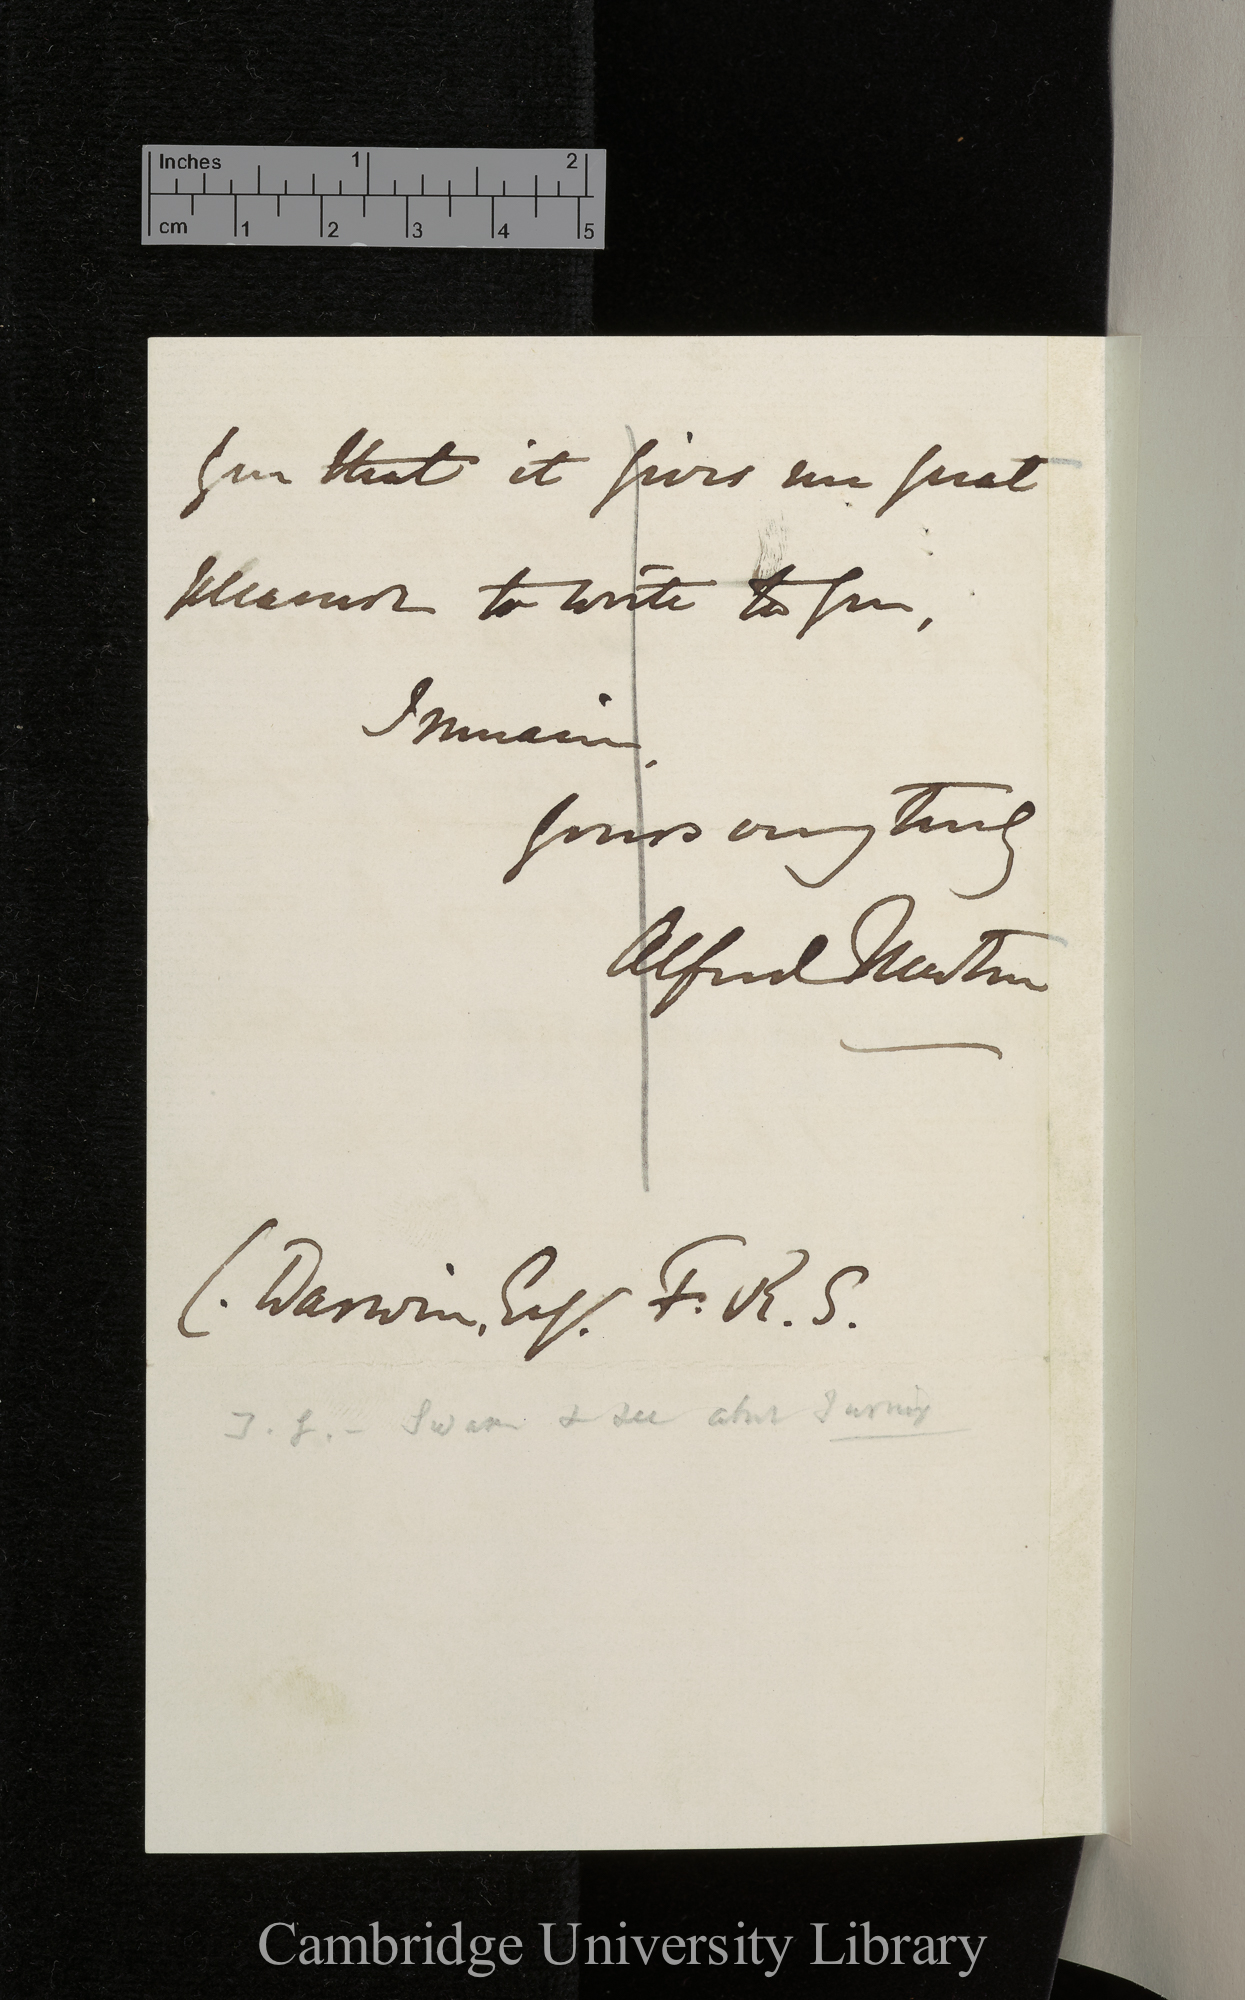 Inches 1 2
cm 1 2 3 4 5
you that it gives me great
pleasure to write to you,
I remain,
Yours very truly
Alfred Newton
C. Darwin, Esq. F. R. S.
Swan & see about
Cambridge University Library